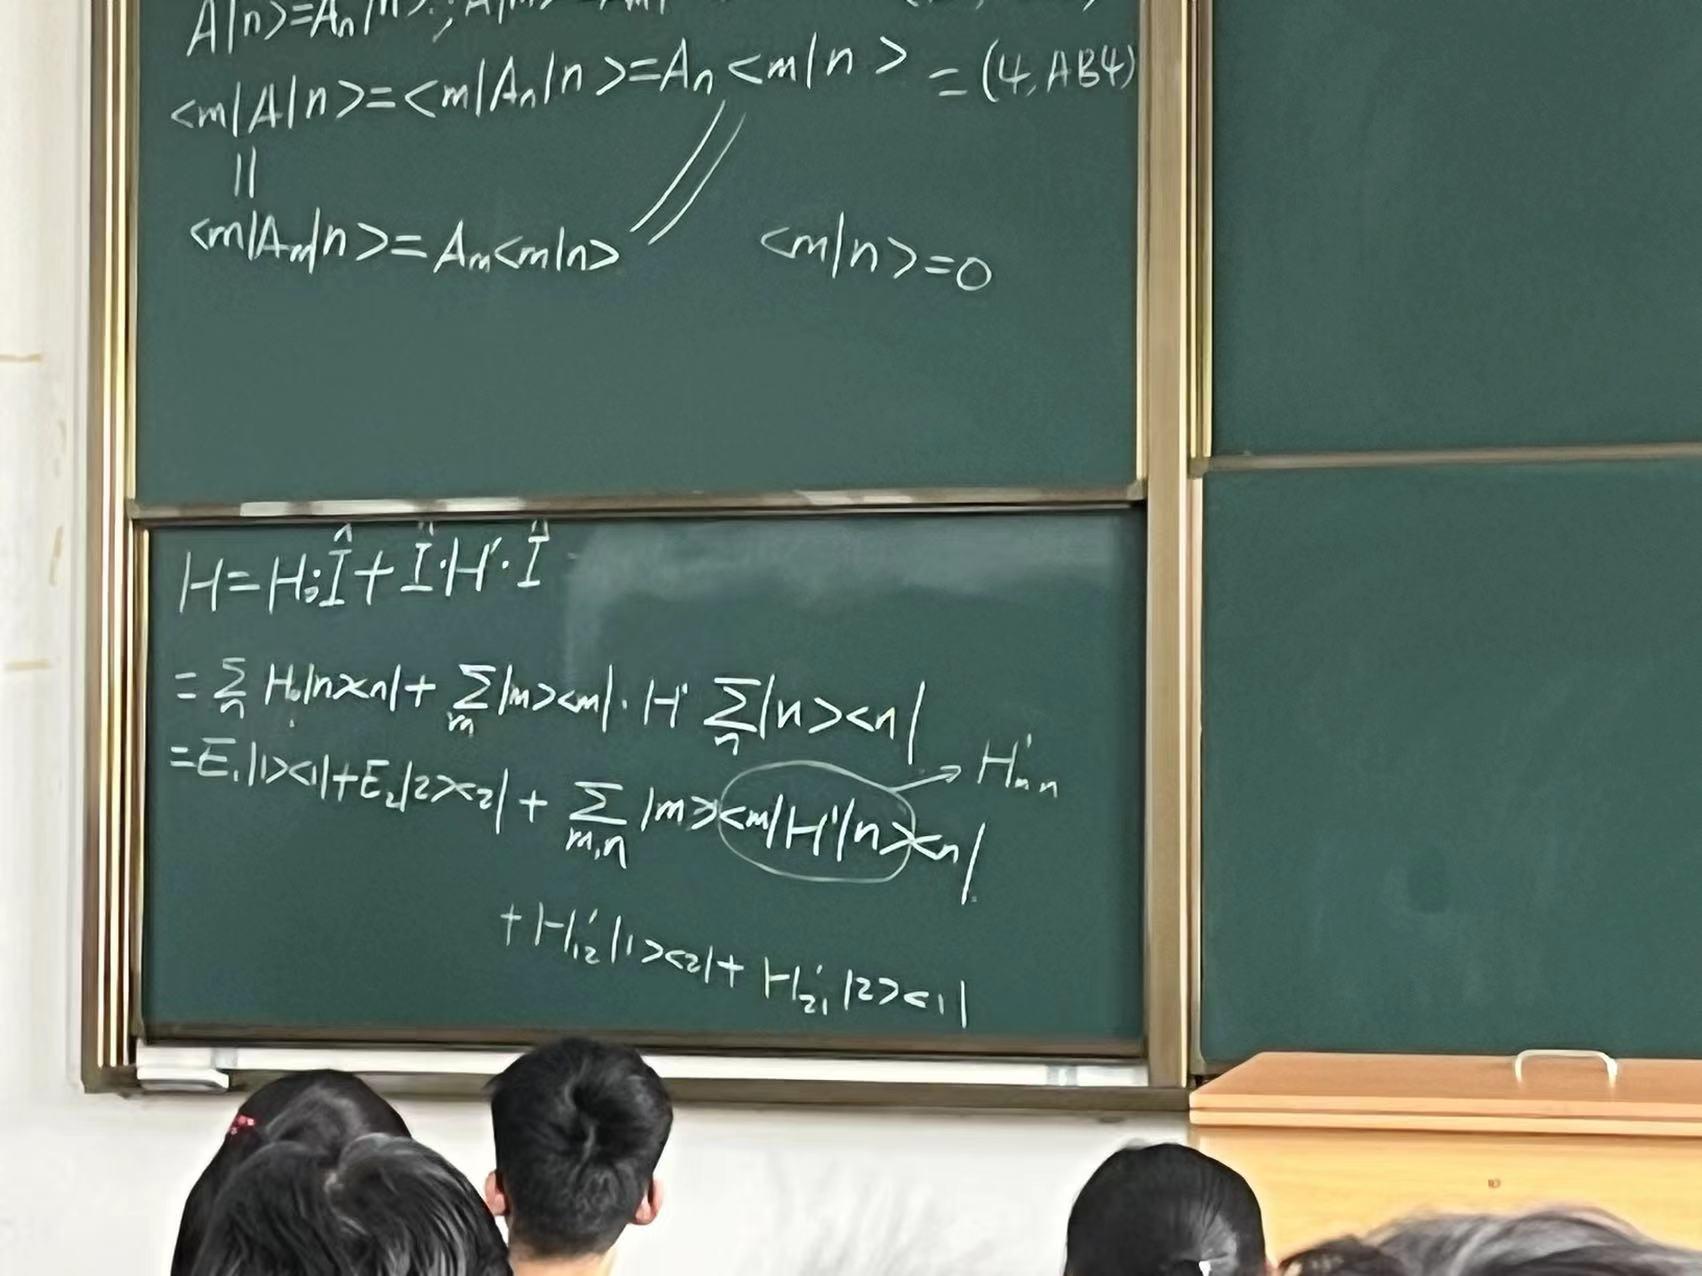 A|n>=An|n>
<m|A|n>=<m|An|n>=An<m|n> =(ψ,ABψ)
||
<m|Am|n>=Am<m|n> <m|n>=0
H=H₀·Î+Î·H'·Î
=∑n H₀|n><n|+∑m|m><m|·H' ∑n|n><n|
=E₁|1><1|+E₂|2><2|+∑m,n |m><m|H'|n><n| → H'mn
+H'₁₂|1><2|+H'₂₁|2><1|